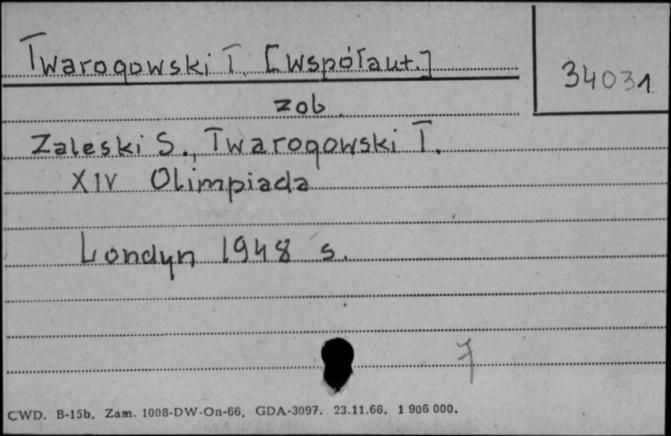 Twarogowski T. [współaut.]
34031
zob.
Zaleski S., Twarogowski T.
XIV Olimpiada
Londyn 1948 s.
7
CWD. B-15b. Zam. 1008-DW-On-66. GDA-3097. 23.11.66. 1 906 000.